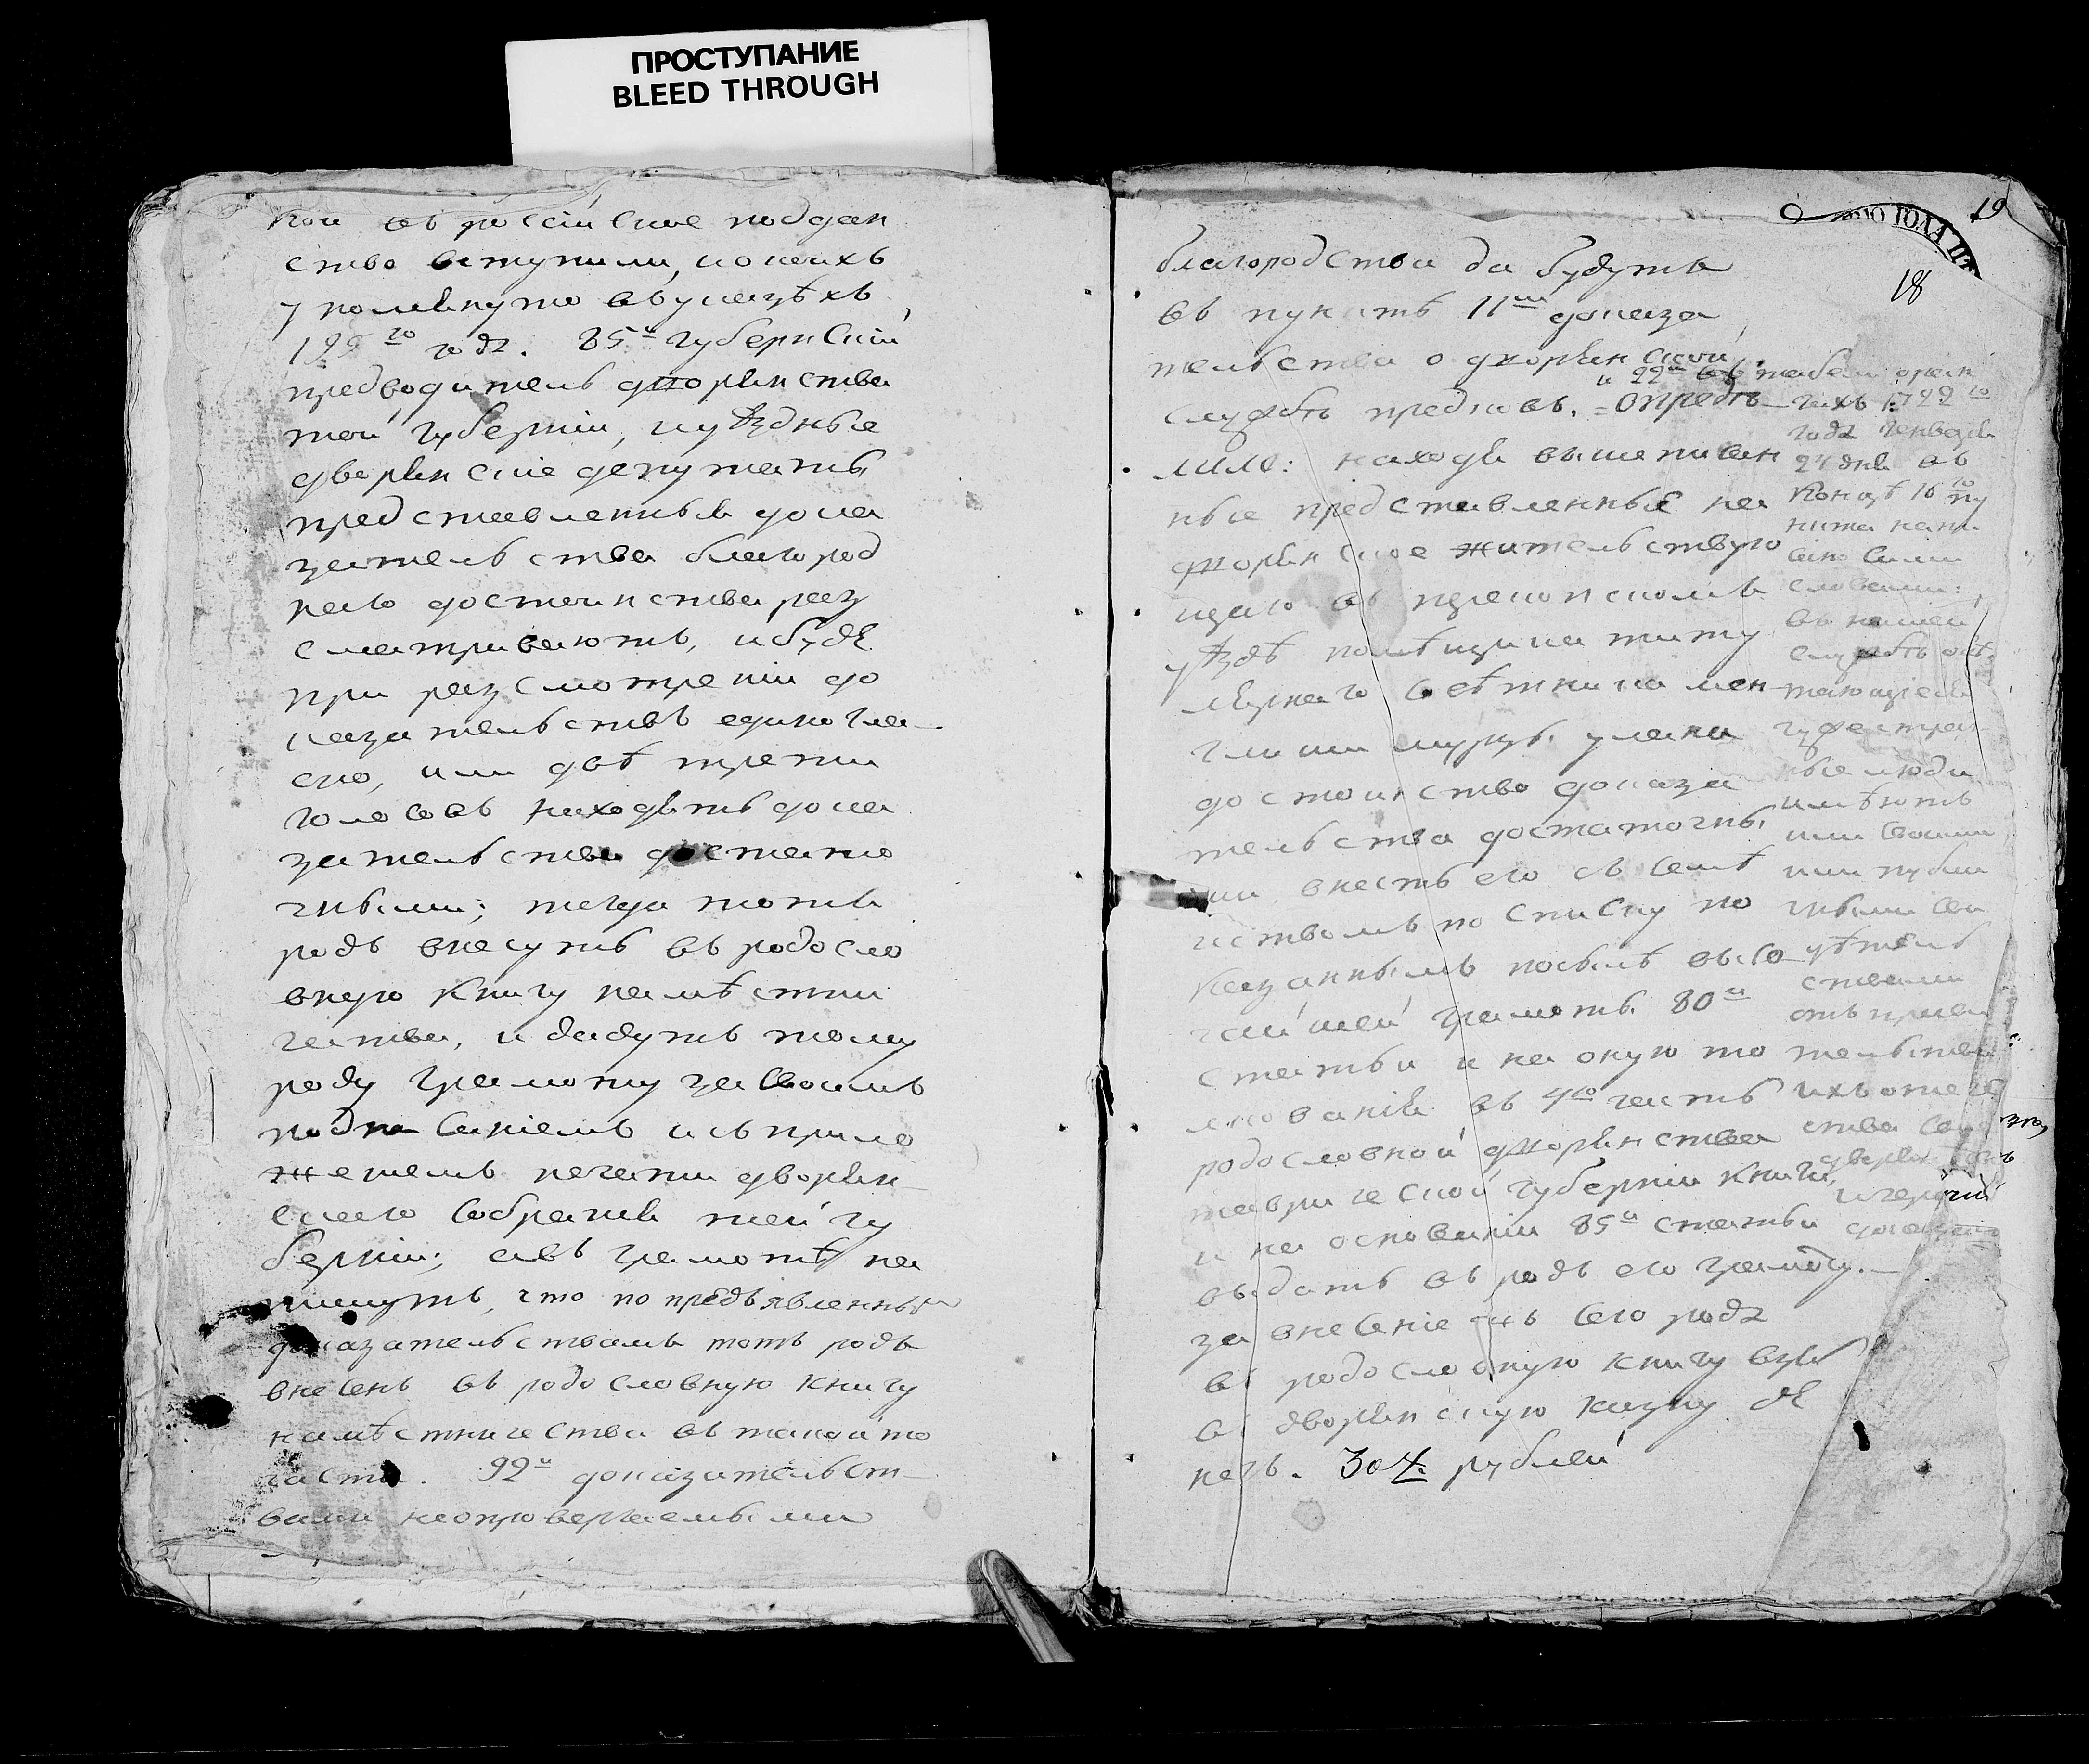 ПРОСТУПАНИЕ
BLEED THROUGH
кои въ российское поддан
ство вступили, и о коихъ
упомянуто въ указѣхъ
года. 85я губернский
предводитель дворянства
той губернии, и уѣздные
дворянские депутаты
представленныя дока
зательства благород
наго достоинства раз
сматриваютъ, и буде
при разсмотрении до
казательствъ единогла
сно, или двѣ трети
голосовъ находятъ дока
зательства достато
чными; тогда тотъ
родъ внесутъ въ родосло
вную книгу намѣстни
чества, и дадутъ тому
роду грамоту за своимъ
подписаниемъ и съ прило
жениемъ печати дворян
скаго собрания той гу
бернии; а въ грамотѣ на
пишутъ, что по предъявленнымъ
доказательствамъ тотъ родъ
внесенъ въ родословную книгу
намѣстничества въ такой то
части. 92я доказательст
вами неопровергаемыми
19
18
благородства да будутъ
въ пунктѣ 11мъ доказа
тельства о дворянской
службѣ предковъ. Опредѣ
лили: находя вышеписан
ные представленные на
дворянское жительствую
щаго въ перекопскомъ
уѣздѣ помѣщика титу
лярнаго совѣтника мен
гли ши мурзы улана
достоинство доказа
тельства достаточны
ми внесть его съ семѣ
иствомъ по списку по
казаннымъ по силѣ высо
чайшей грамоты. 80й
статьи и на оную то
лкования въ 4ю часть
родословной дворянства
таврической губернии книги,
и на основании 85й статьи
выдать въ родъ его грамоту.
за внесение сего рода
въ родословную книгу взя
въ дворянскую казну де
негъ. 304. рублей
и 22я въ табели оран
гахъ 1722го
года генваря
24 дня въ
концѣ 16го пу
нкта
словами:
въ нашей
службѣ об
рѣтающиеся
чужестран
ные люди
имѣютъ
или своими
или публи
чными сви
дѣтель
ствами
отъ прави
тельства
ихъ отече
ства